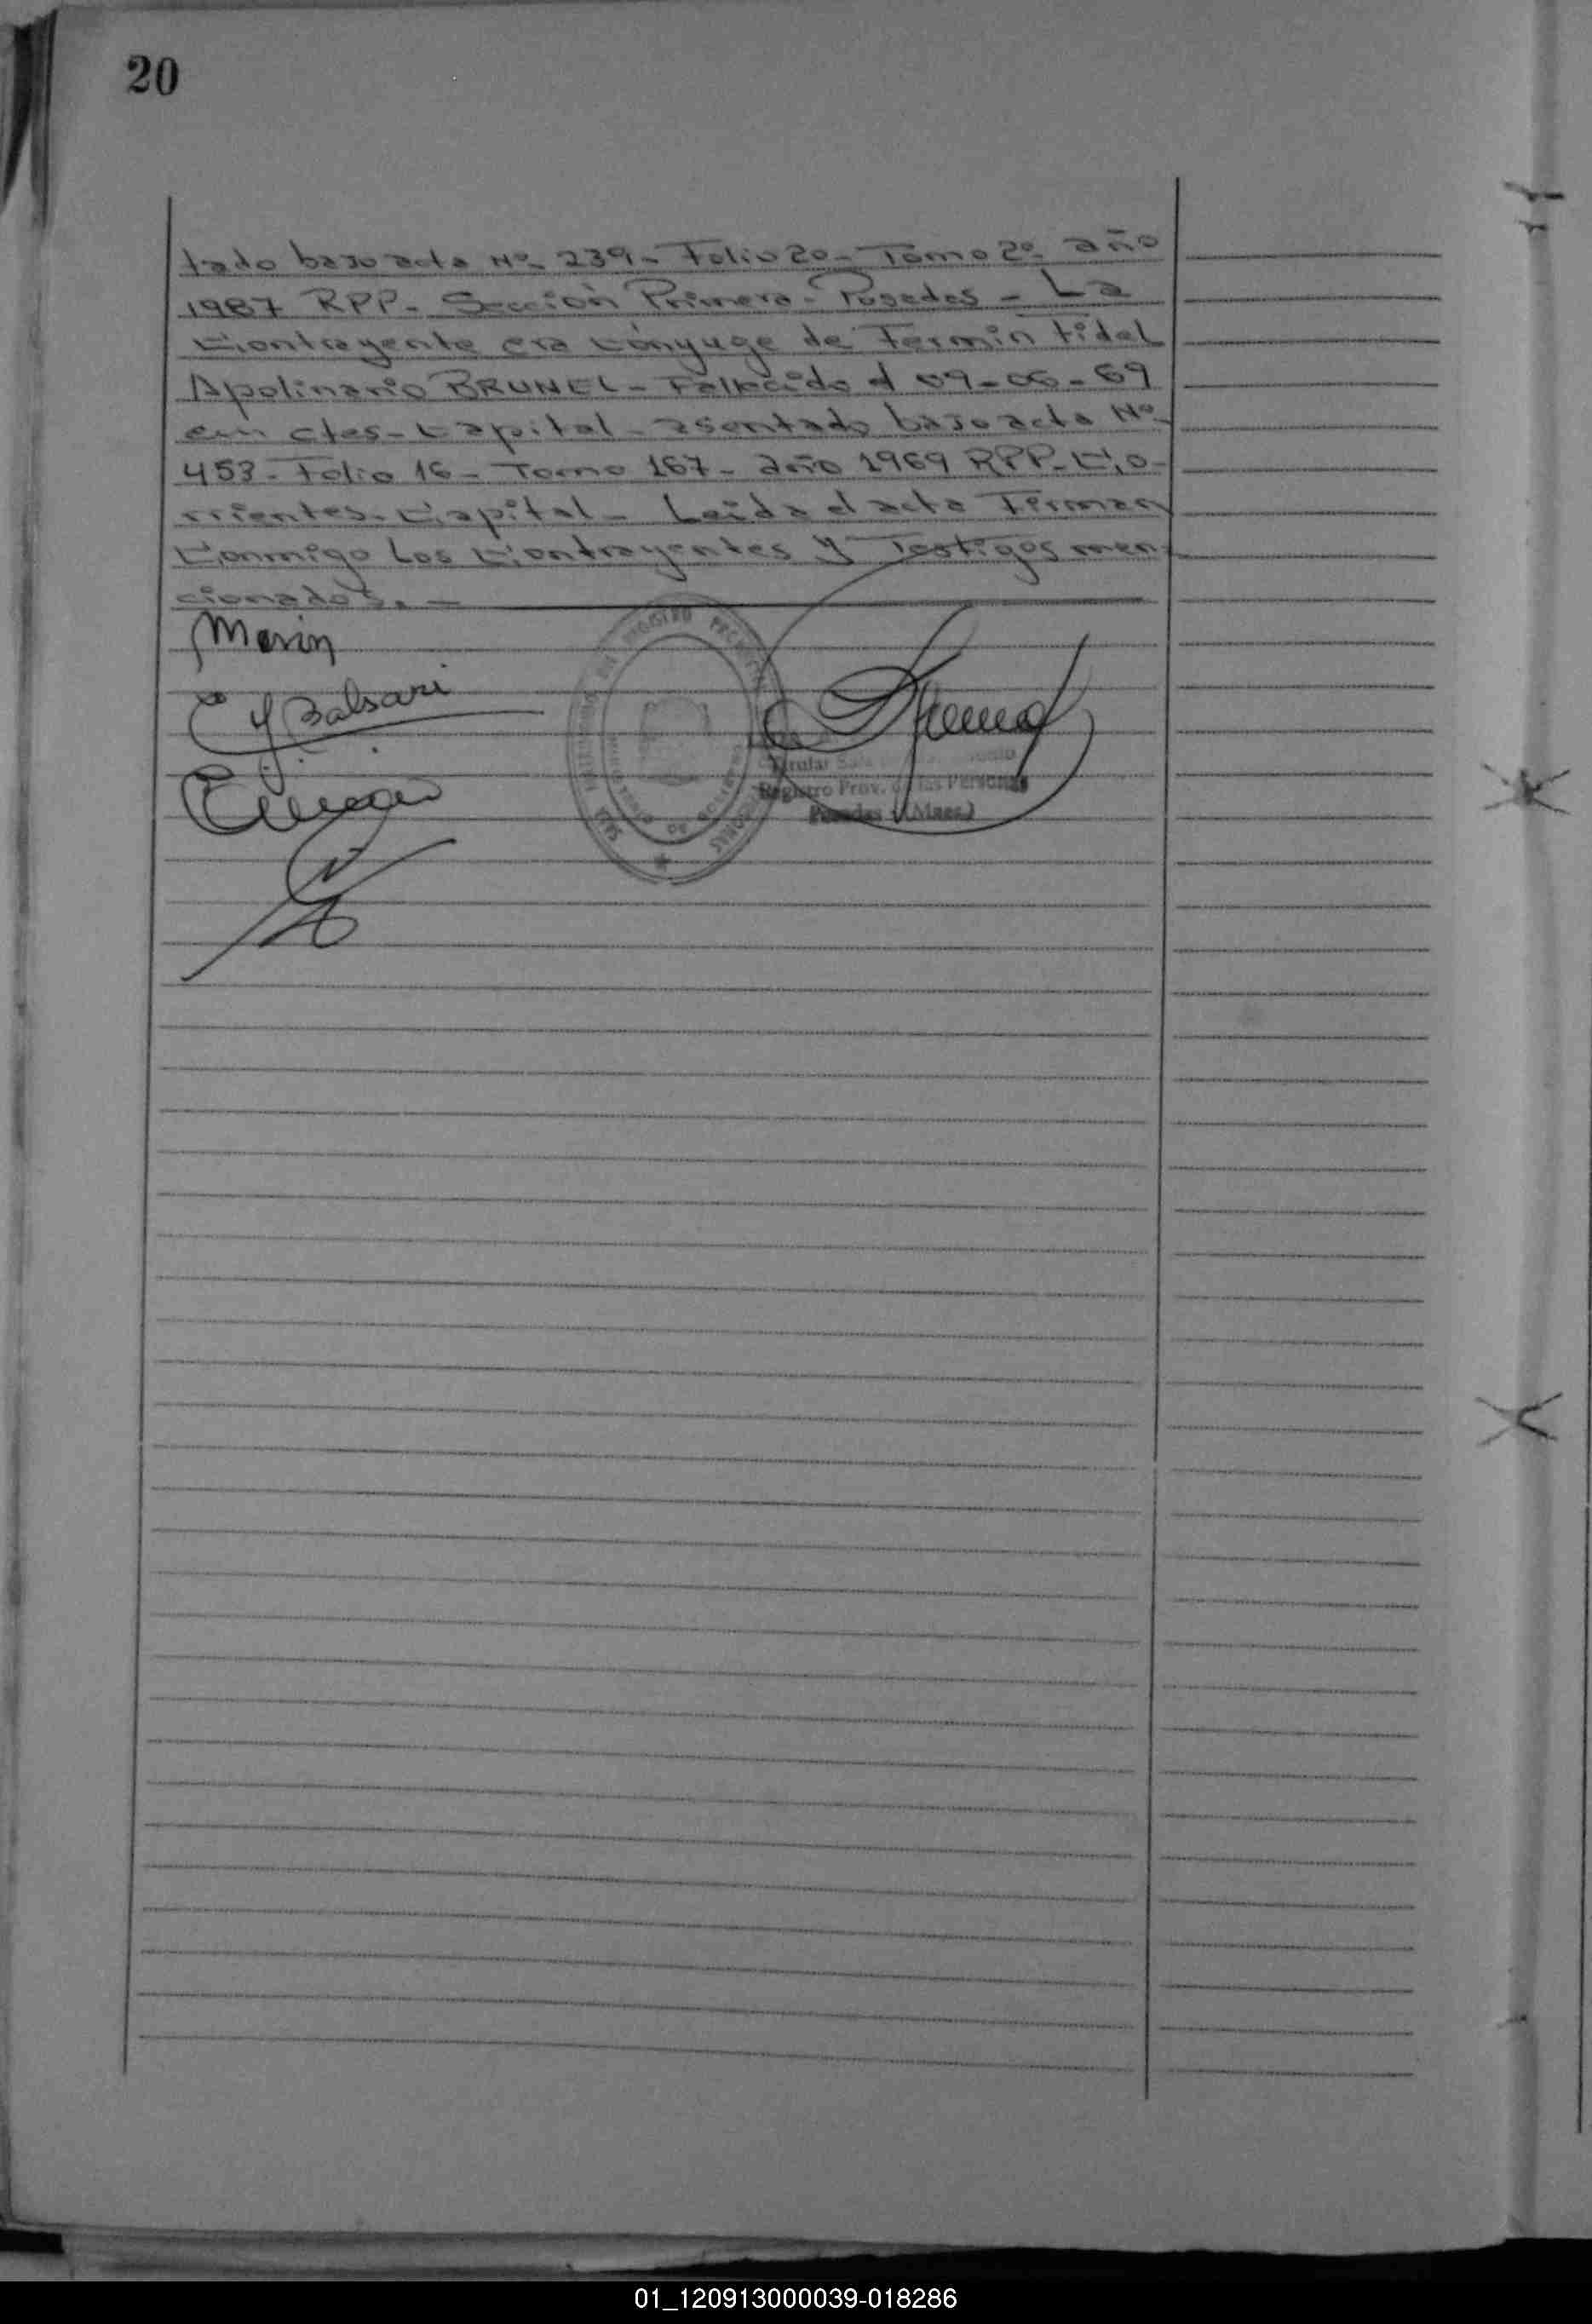 20
tado bajo acta Nº 239- Folio 20- Tomo 2º año
1987 RPP- Sección Primera- Posadas - La
Contrayente era cónyuge de Fermin Fidel
Apolinario BRUNEL- Fallecido el 09-06-69
en Ctes- Capital- asentado bajo acta Nº
453- Folio 16- Tomo 167- año 1969 RPP- Co-
rrientes- Capital- Leída el acta Firman
Conmigo Los Contrayentes y Testigos men-
cionados.-
Marin
Balsari
REGISTRO
Titular Sala
Registro Prov. de las Personas
Posadas (Mnes.)
01_120913000039-018286